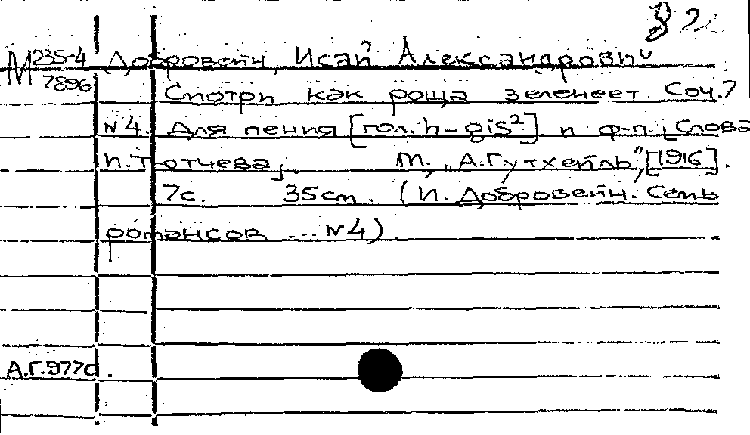 82
М 235-4 Добровейн, Исай Александрович
7896
Смотри как роща зеленеет. Соч.7
N4. Для пения [гол. h - gis²] и ф-п. Слова
Н. Тютчева. М., „А. Гутхейль", [1916].
7с. 35cm. (И. Добровейн. Семь
романсов ... N4)
А.Г.977d.